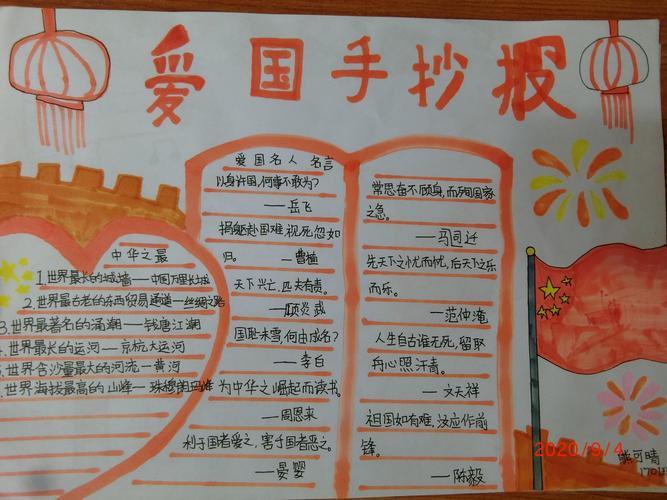 爱国手抄报
爱国名人 名言
以身许国,何事不敢为?
——岳飞
捐躯赴国难,视死忽如
归。 ——曹植
天下兴亡,匹夫有责。
——顾炎武
国耻未雪,何由成名?
——李白
为中华之崛起而读书。
——周恩来
利于国者爱之,害于国者恶之。
——晏婴
常思奋不顾身,而殉国家
之急。
——马司迁
先天下之忧而忧,后天下之乐
而乐。
——范仲淹
人生自古谁无死,留取
丹心照汗青。
——文天祥
祖国如有难,汝应作前
锋。
——陈毅
中华之最
1.世界最长的城墙——中国万里长城
2.世界最古老的东西贸易通道——丝绸之路
3.世界最著名的涌潮——钱唐江潮
4.世界最长的运河——京杭大运河
5.世界含沙量最大的河流——黄河
6.世界海拔最高的山峰——珠穆朗玛峰
2020/9/4
可晴